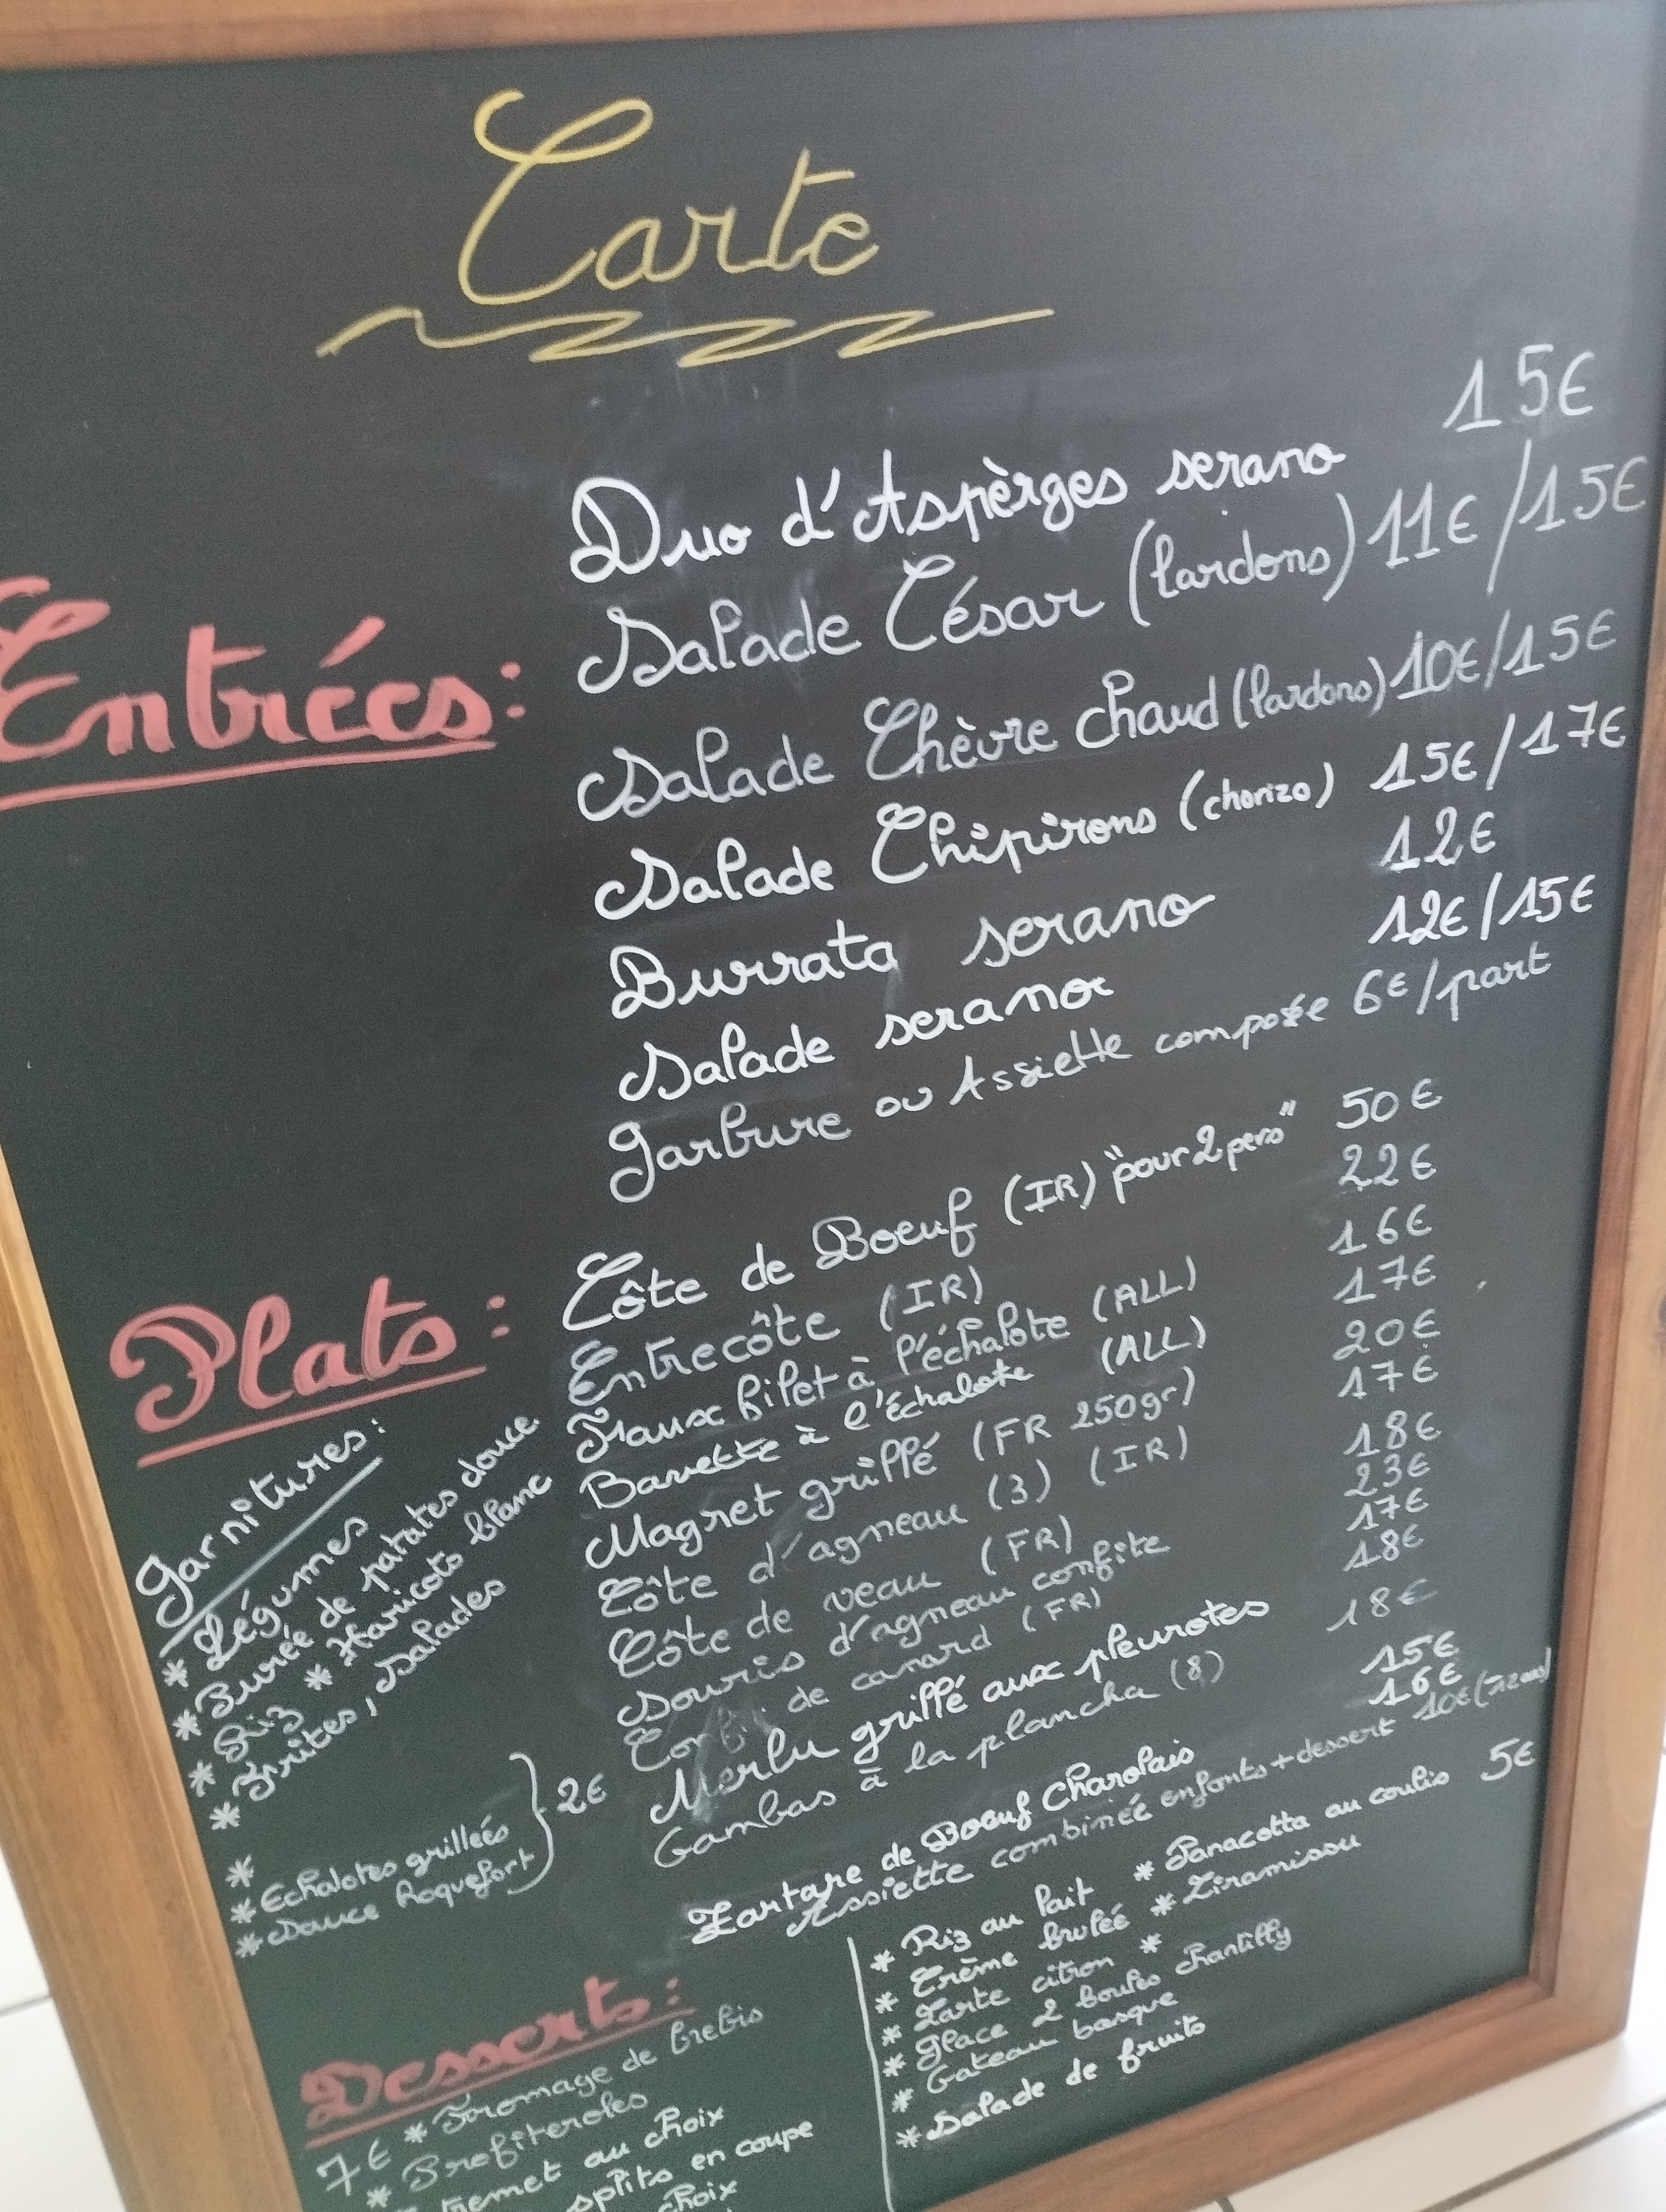 Carte
Entrées:
Duo d'Aspèrges serano 15€
Salade César (lardons) 11€/15€
Salade Chèvre chaud (lardons) 10€/15€
Salade Chipirons (chorizo) 15€/17€
Burrata serano 12€
Salade serano 12€/15€
Garbure ou Assiette composée 6€/part
Plats:
Côte de Boeuf (IR) "pour 2 pers" 50€
Entrecôte (IR) 22€
Faux filet à l'échalote (ALL) 16€
Bavette à l'échalote (ALL) 17€
Magret grillé (FR 250gr) 20€
Côte d'agneau (3) (IR) 17€
Côte de veau (FR) 18€
Souris d'agneau confite 23€
Confit de canard (FR) 17€
Merlu grillé aux pleurotes 18€
Gambas à la plancha (8) 18€
Tartare de Boeuf Charolais 15€
Assiette combinée enfants + dessert 16€
10€
Garnitures:
* Légumes
* Purée de patates douce
* Riz * Haricots blanc
* Frites, Salades
*
* Echalotes grillées
* Sauce Roquefort } 2€
Desserts:
7€ * Fromage de brebis
* Profiteroles
au choix
splits en coupe
choix
* Riz au lait * Panacotta au coulis 5€
* Crème brulée * Tiramissu
* Tarte citron *
* Glace 2 boules chantilly
* Gateau basque
* Salade de fruits